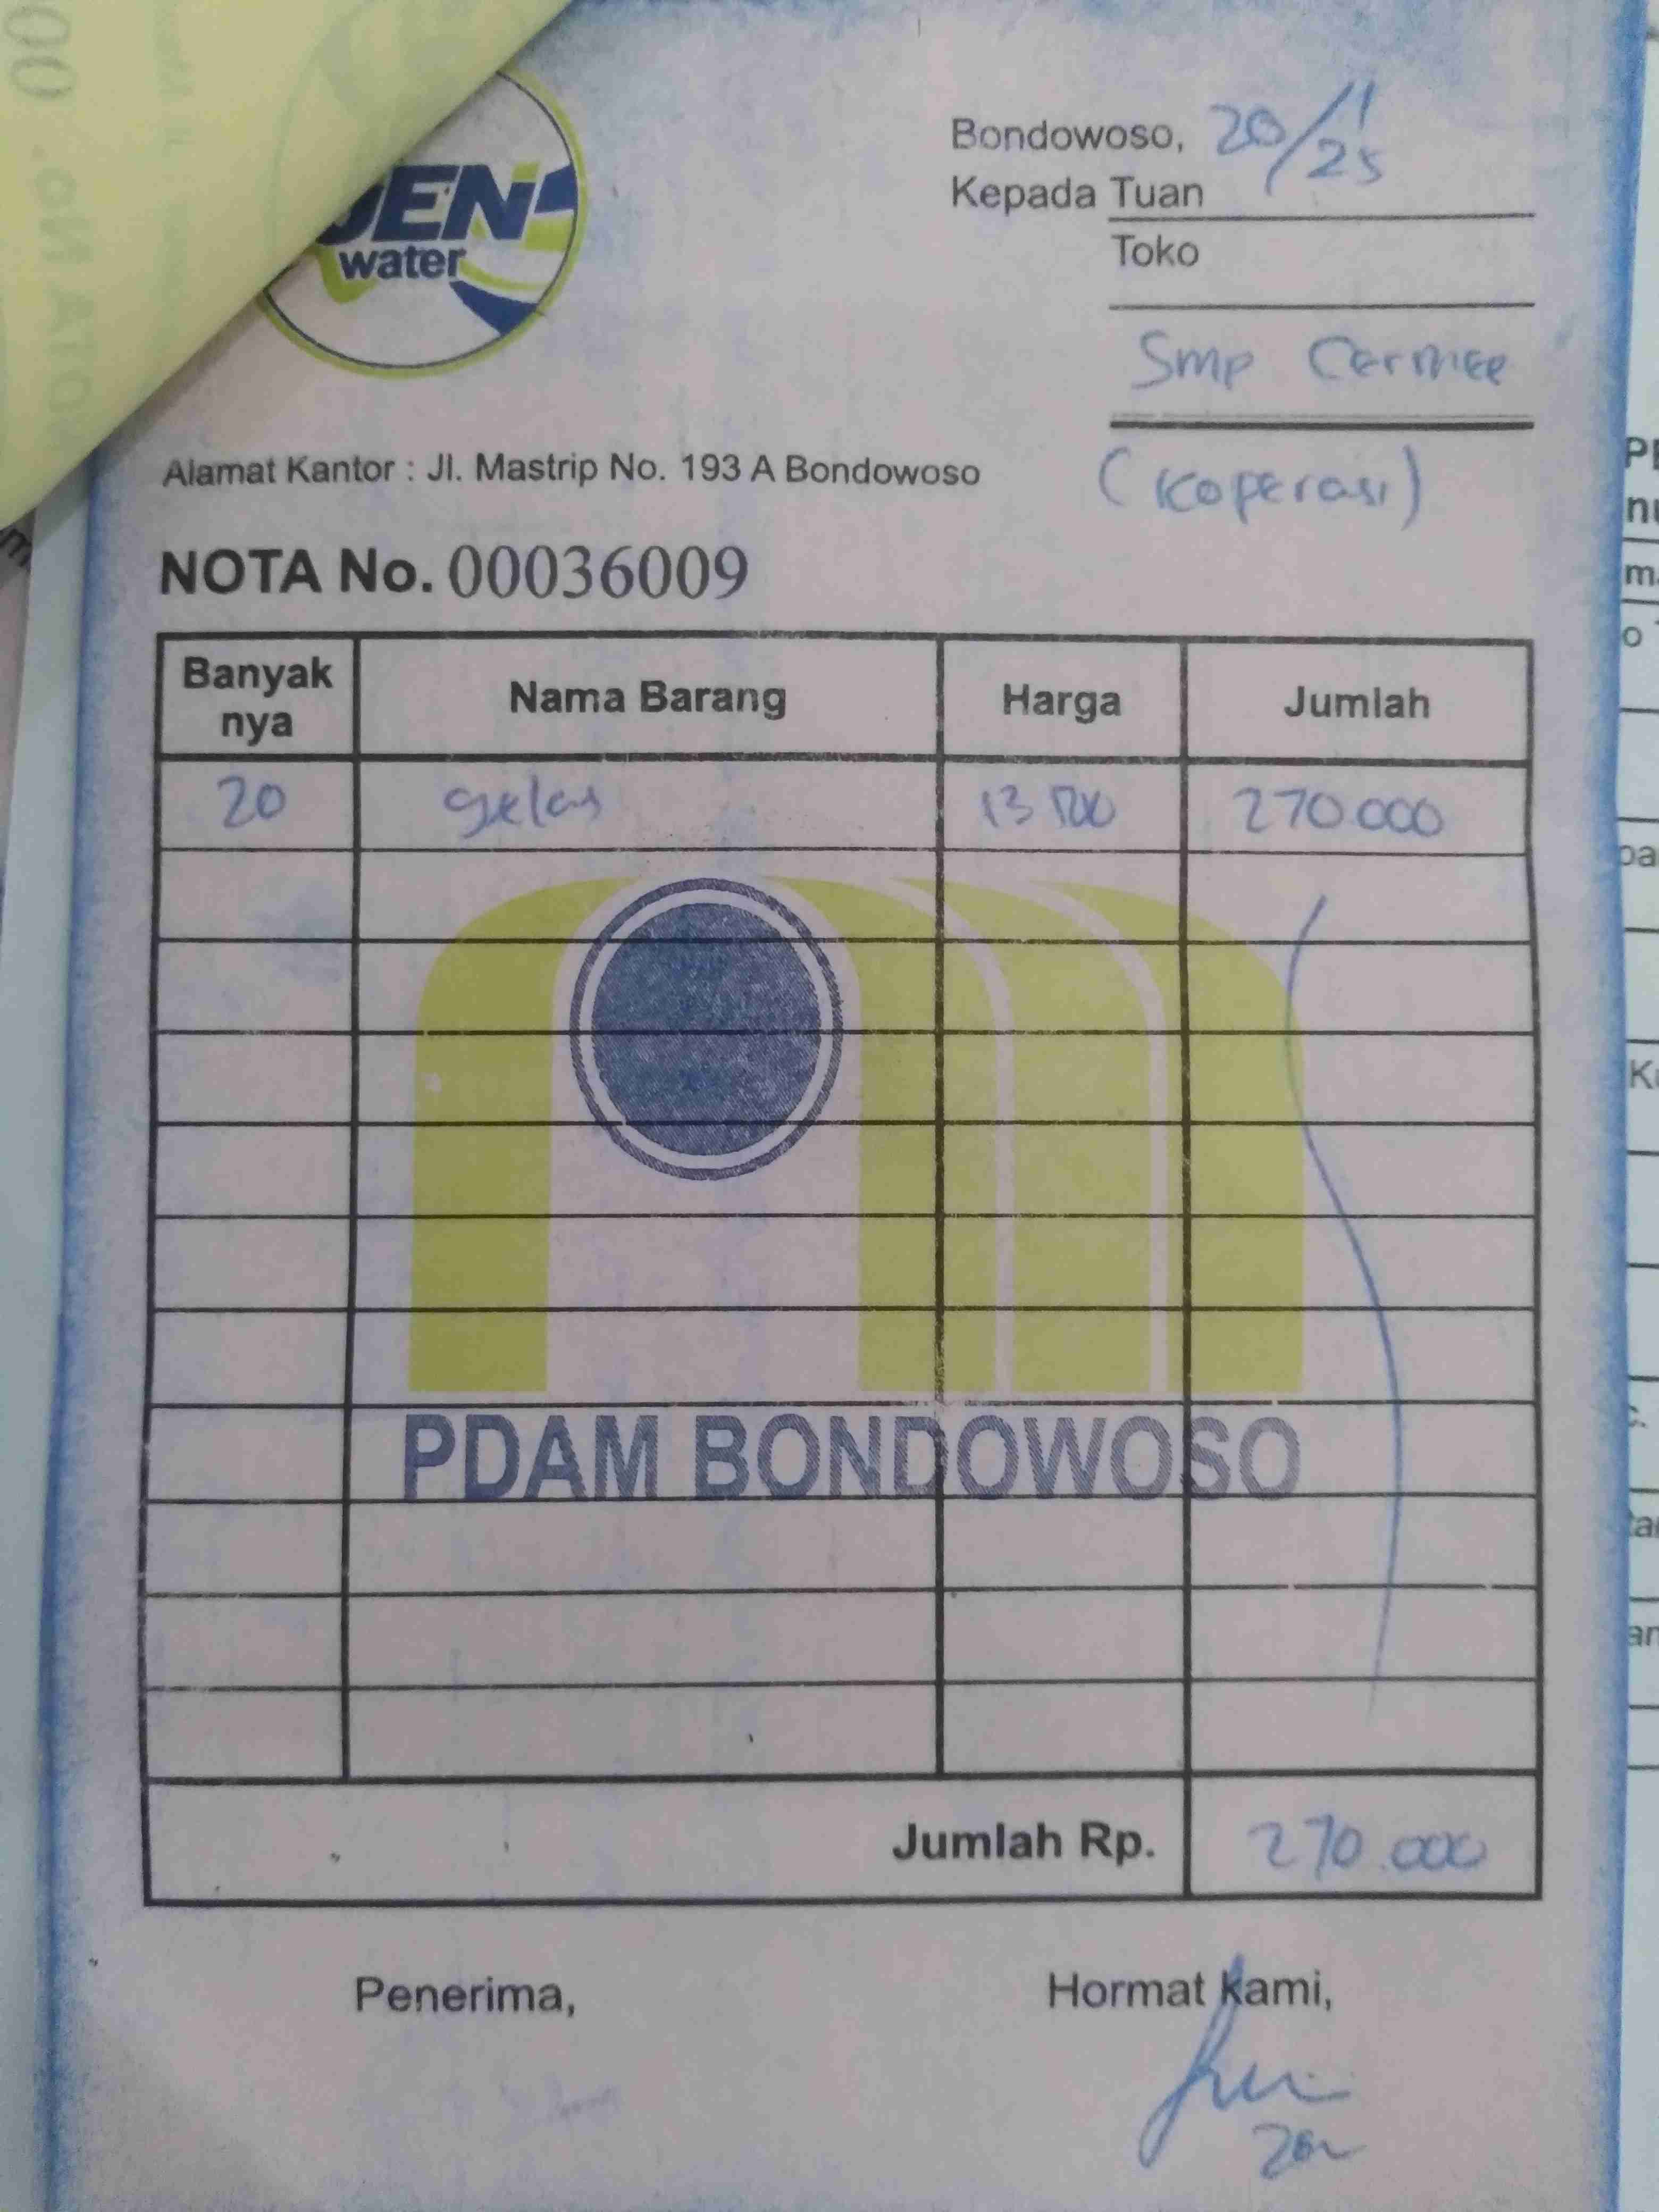 JEN
water
Bondowoso, 20/1/25
Kepada Tuan
Toko
Smp Cermee
(Koperasi)
Alamat Kantor : Jl. Mastrip No. 193 A Bondowoso
NOTA No. 00036009
Banyak nya Nama Barang Harga Jumlah
20 gelas 13 500 270 000
PDAM BONDOWOSO
Jumlah Rp. 270.000
Penerima, Hormat Kami,